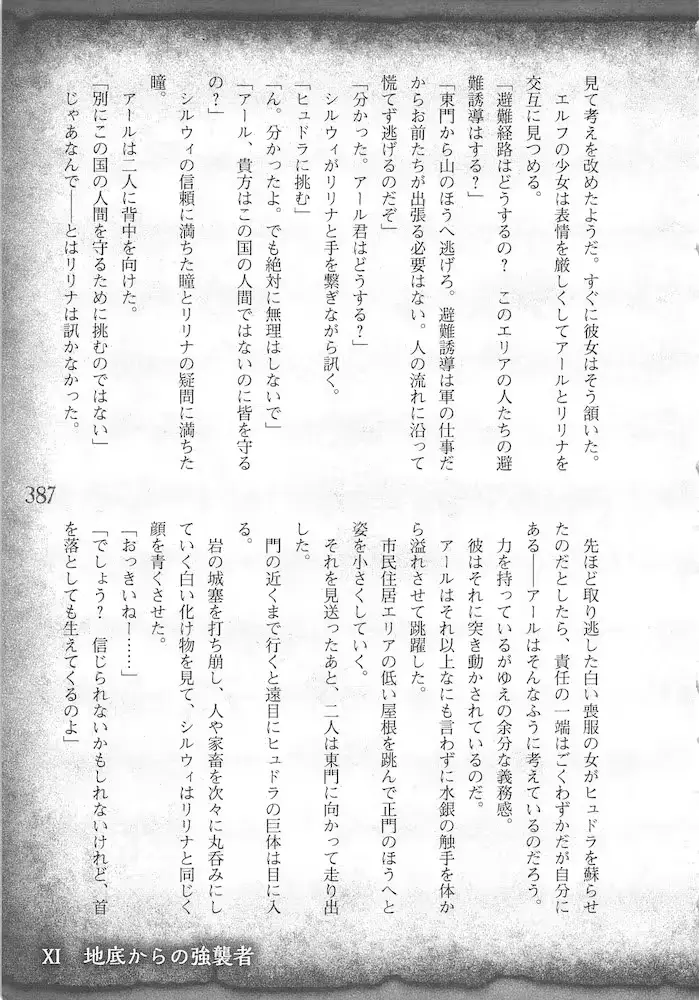 見て考えを改めたようだ。すぐに彼女はそう頷いた。
エルフの少女は表情を厳しくしてアールとリリナを
交互に見つめる。
「避難経路はどうするの？　このエリアの人たちの避
難誘導はする？」
「東門から山のほうへ逃げろ。避難誘導は軍の仕事だ
からお前たちが出張る必要はない。人の流れに沿って
慌てず逃げるのだぞ」
「分かった。アール君はどうする？」
シルウィがリリナと手を繋ぎながら訊く。
「ヒュドラに挑む」
「ん。分かったよ。でも絶対に無理はしないで」
「アール、貴方はこの国の人間ではないのに皆を守る
の？」
シルウィの信頼に満ちた瞳とリリナの疑問に満ちた
瞳。
アールは二人に背中を向けた。
「別にこの国の人間を守るために挑むのではない」
じゃあなんで――とはリリナは訊かなかった。
先ほど取り逃した白い喪服の女がヒュドラを蘇らせ
たのだとしたら、責任の一端はごくわずかだが自分に
ある――アールはそんなふうに考えているのだろう。
力を持っているがゆえの余分な義務感。
彼はそれに突き動かされているのだ。
アールはそれ以上なにも言わずに水銀の触手を体か
ら溢れさせて跳躍した。
市民住居エリアの低い屋根を跳んで正門のほうへと
姿を小さくしていく。
それを見送ったあと、二人は東門に向かって走り出
した。
門の近くまで行くと遠目にヒュドラの巨体は目に入
る。
岩の城塞を打ち崩し、人や家畜を次々に丸呑みにし
ていく白い化け物を見て、シルウィはリリナと同じく
顔を青くさせた。
「おっきいねー……」
「でしょう？　信じられないかもしれないけれど、首
を落としても生えてくるのよ」
387
XI　地底からの強襲者